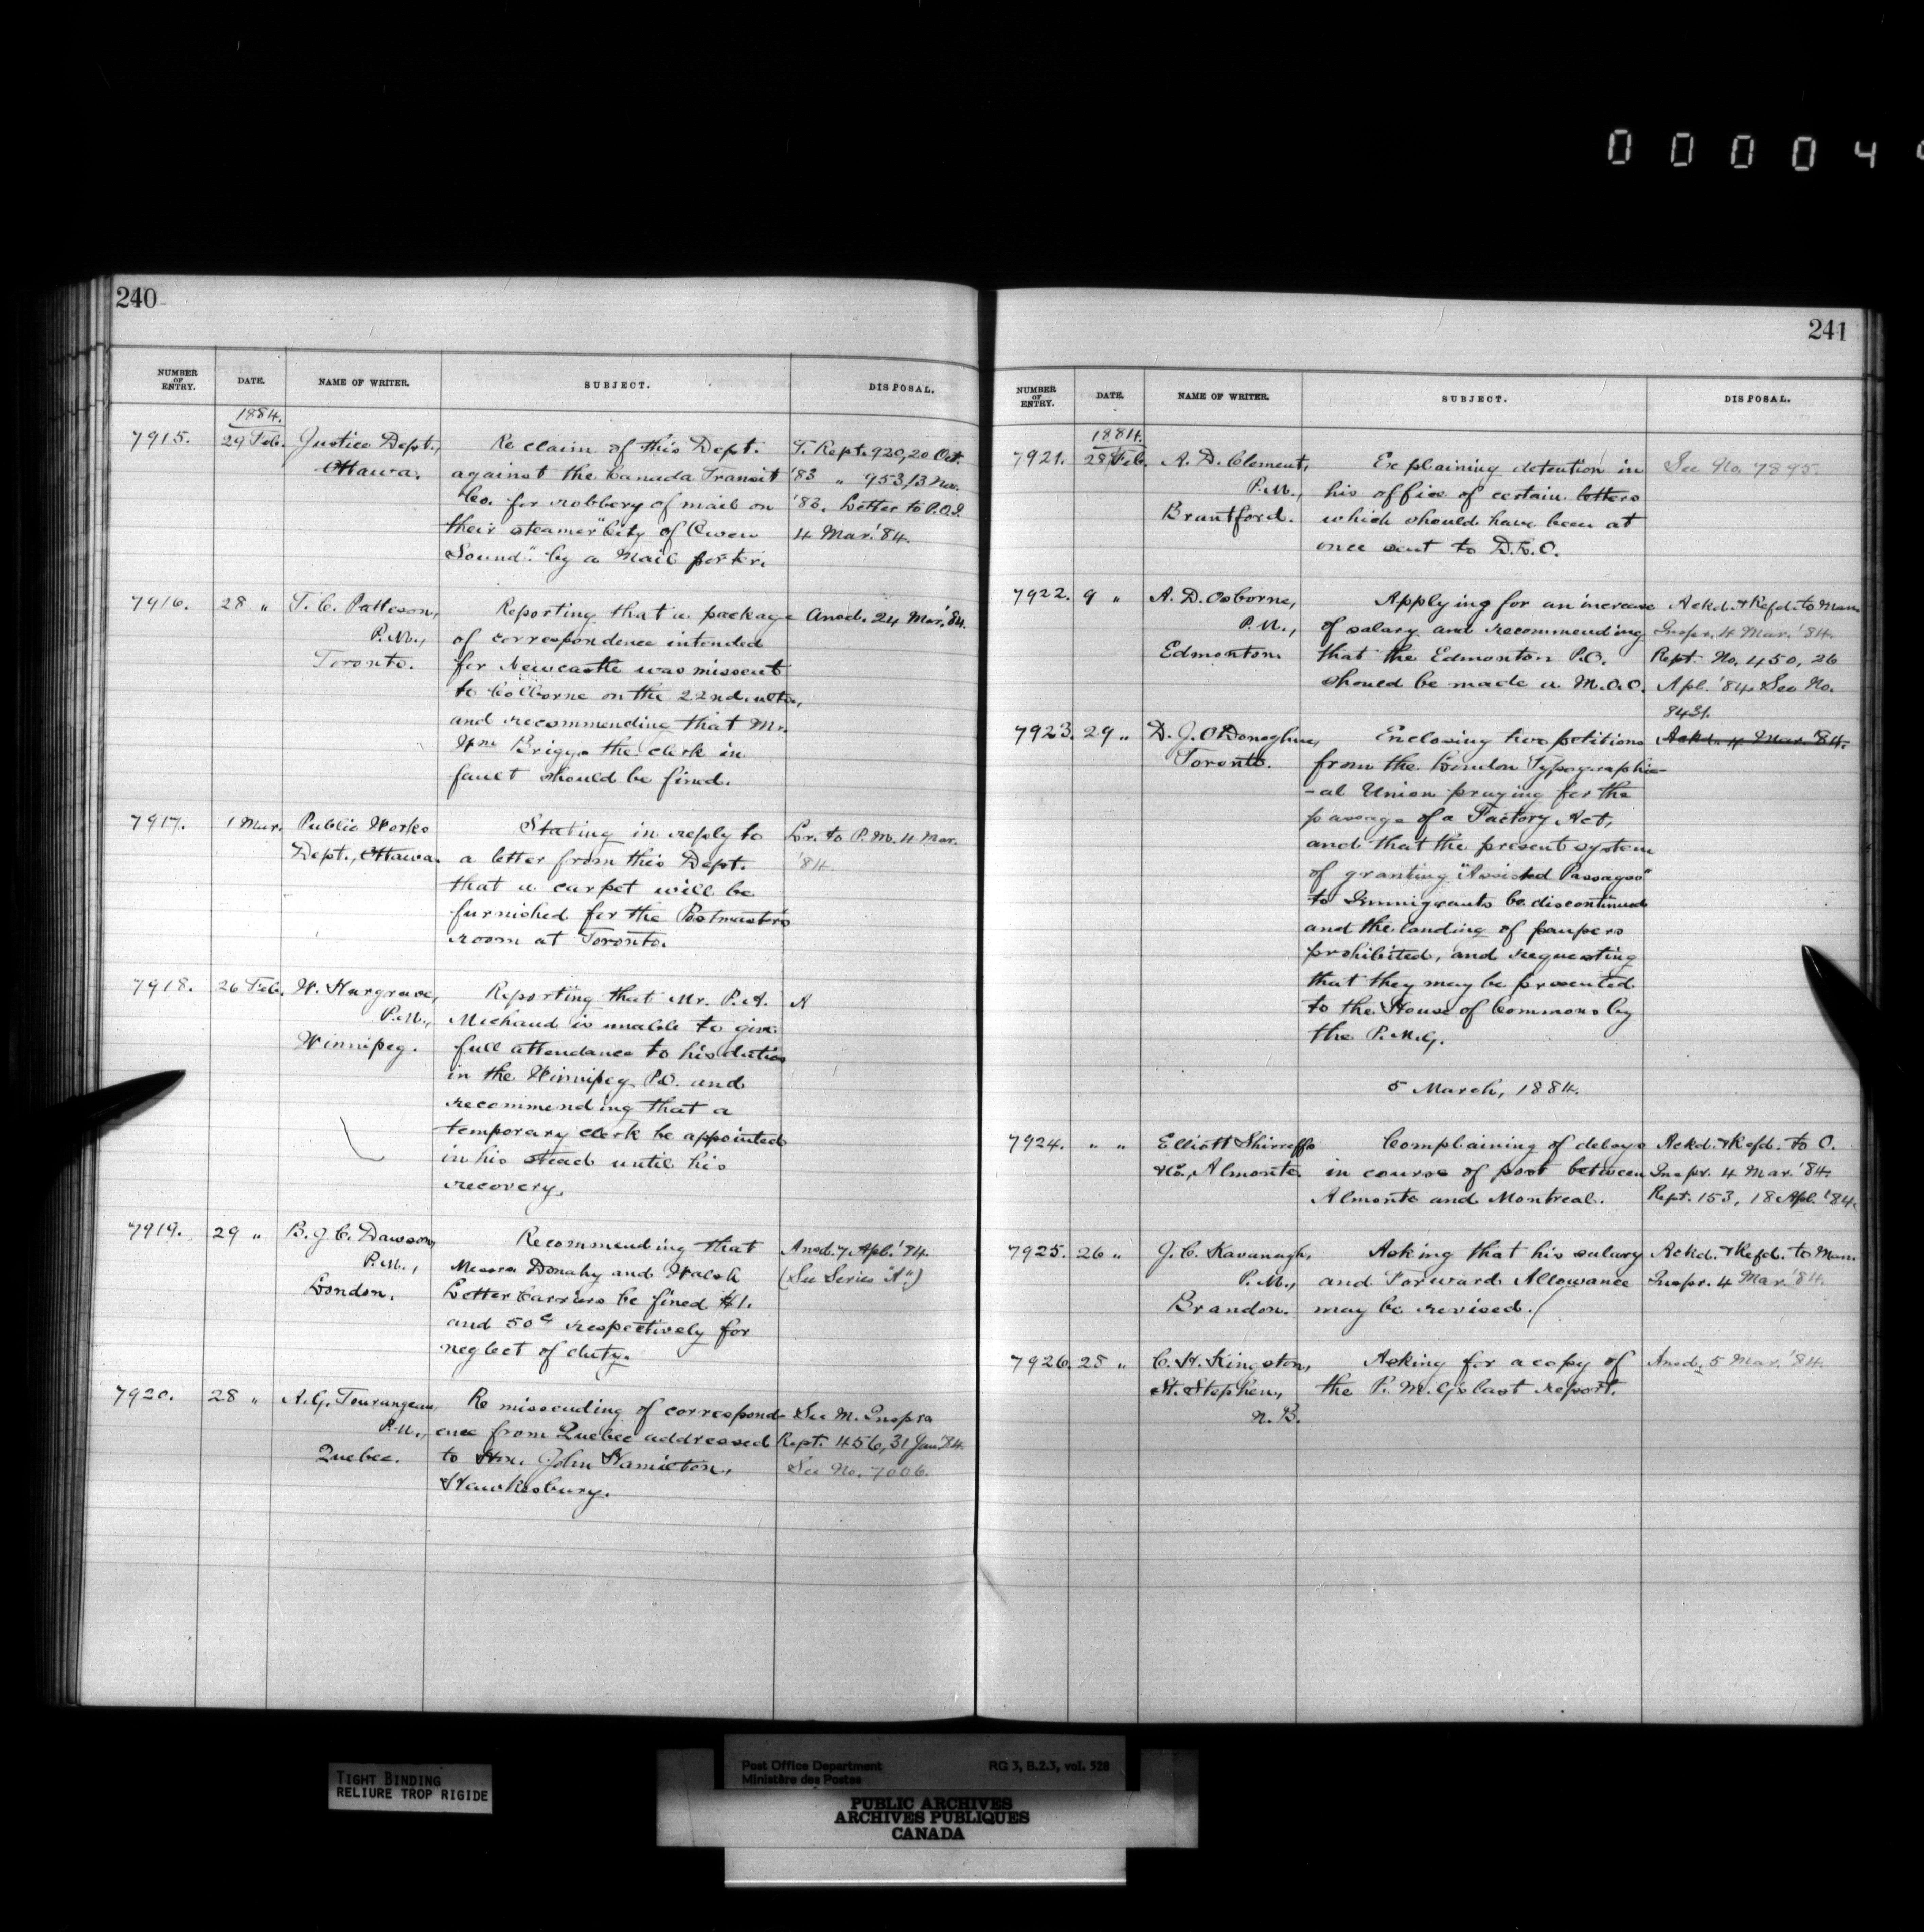 0 0 0 0 4
240
NUMBER OF ENTRY. DATE. NAME OF WRITER. SUBJECT. DISPOSAL.
1884.
7915. 29 Feb. Justice Dept., Re claim of this Dept. T. Rept. 920, 20 Oct.
Ottawa. against the Canada Transit '83 " 953, 13 Nov.
Co. for robbery of mail on '83. Letter to P.O.I.
their steamer "City of Owen 4 Mar. '84.
Sound" by a Mail porter.
7916. 28 " T. C. Patteson, Reporting that a package Ansd. 24 Mar. '84.
P.M., of correspondence intended
Toronto. for Newcastle was missent
to Colborne on the 22nd. ulto.,
and recommending that Mr.
Wm Briggs the clerk in
fault should be fined.
7917. 1 Mar. Public Works Stating in reply to Lr. to P.M. 4 Mar.
Dept., Ottawa. a letter from this Dept. '84.
that a carpet will be
furnished for the Postmaster's
room at Toronto.
7918. 26 Feb. W. Hargrave, Reporting that Mr. P. A. A
P.M., Michaud is unable to give
Winnipeg. full attendance to his duties
in the Winnipeg P.O. and
recommending that a
temporary clerk be appointed
in his stead until his
recovery.
7919. 29 " B. J. C. Dawson, Recommending that Ansd. 7 Apl. '84.
P.M., Messrs Donahy and Walsh (See Series "A")
London. Letter Carriers be fined $1.
and 50¢ respectively for
neglect of duty.
7920. 28 " A. G. Tourangeau, Re missending of correspond- See M. Insprs
P.M., ence from Quebec addressed Rept. 456, 31 Jan. '84.
Quebec. to Hon. John Hamilton, See No. 7006.
Hawkesbury.
241
NUMBER OF ENTRY. DATE. NAME OF WRITER. SUBJECT. DISPOSAL.
1884.
7921. 28 Feb. A. D. Clement, Explaining detention in See No. 7895.
P.M., his office of certain letters
Brantford. which should have been at
once sent to D.L.O.
7922. 9 " A. D. Osborne, Applying for an increase Ackd. & Refd. to Man.
P.M., of salary and recommending Inspr. 4 Mar. '84.
Edmonton. that the Edmonton P.O. Rept. No. 450, 26
should be made a M.O.O. Apl. '84. See No.
8431.
7923. 29 " D. J. O'Donoghue, Enclosing two petitions Ackd. 4 Mar. '84.
Toronto. from the London Typographic-
-al Union praying for the
passage of a Factory Act,
and that the present system
of granting "Assisted Passages"
to Immigrants be discontinued
and the landing of paupers
prohibited, and requesting
that they may be presented
to the House of Commons by
the P.M.G.
5 March, 1884.
7924. " " Elliott Shirreffs Complaining of delays Ackd. & Refd. to O.
& Co., Almonte in course of post between Inspr. 4 Mar. '84.
Almonte and Montreal. Rept. 153, 18 Apl. '84.
7925. 26 " J. C. Kavanagh, Asking that his salary Ackd. & Refd. to Man.
P.M., and Forward Allowance Inspr. 4 Mar. '84.
Brandon. may be revised.
7926. 28 " C. H. Kingston, Asking for a copy of Ansd. 5 Mar. '84.
St. Stephen, the P.M.G's last report.
N.B.
TIGHT BINDING
RELIURE TROP RIGIDE
Post Office Department RG 3, B.2.3, vol. 528
Ministère des Postes
PUBLIC ARCHIVES
ARCHIVES PUBLIQUES
CANADA